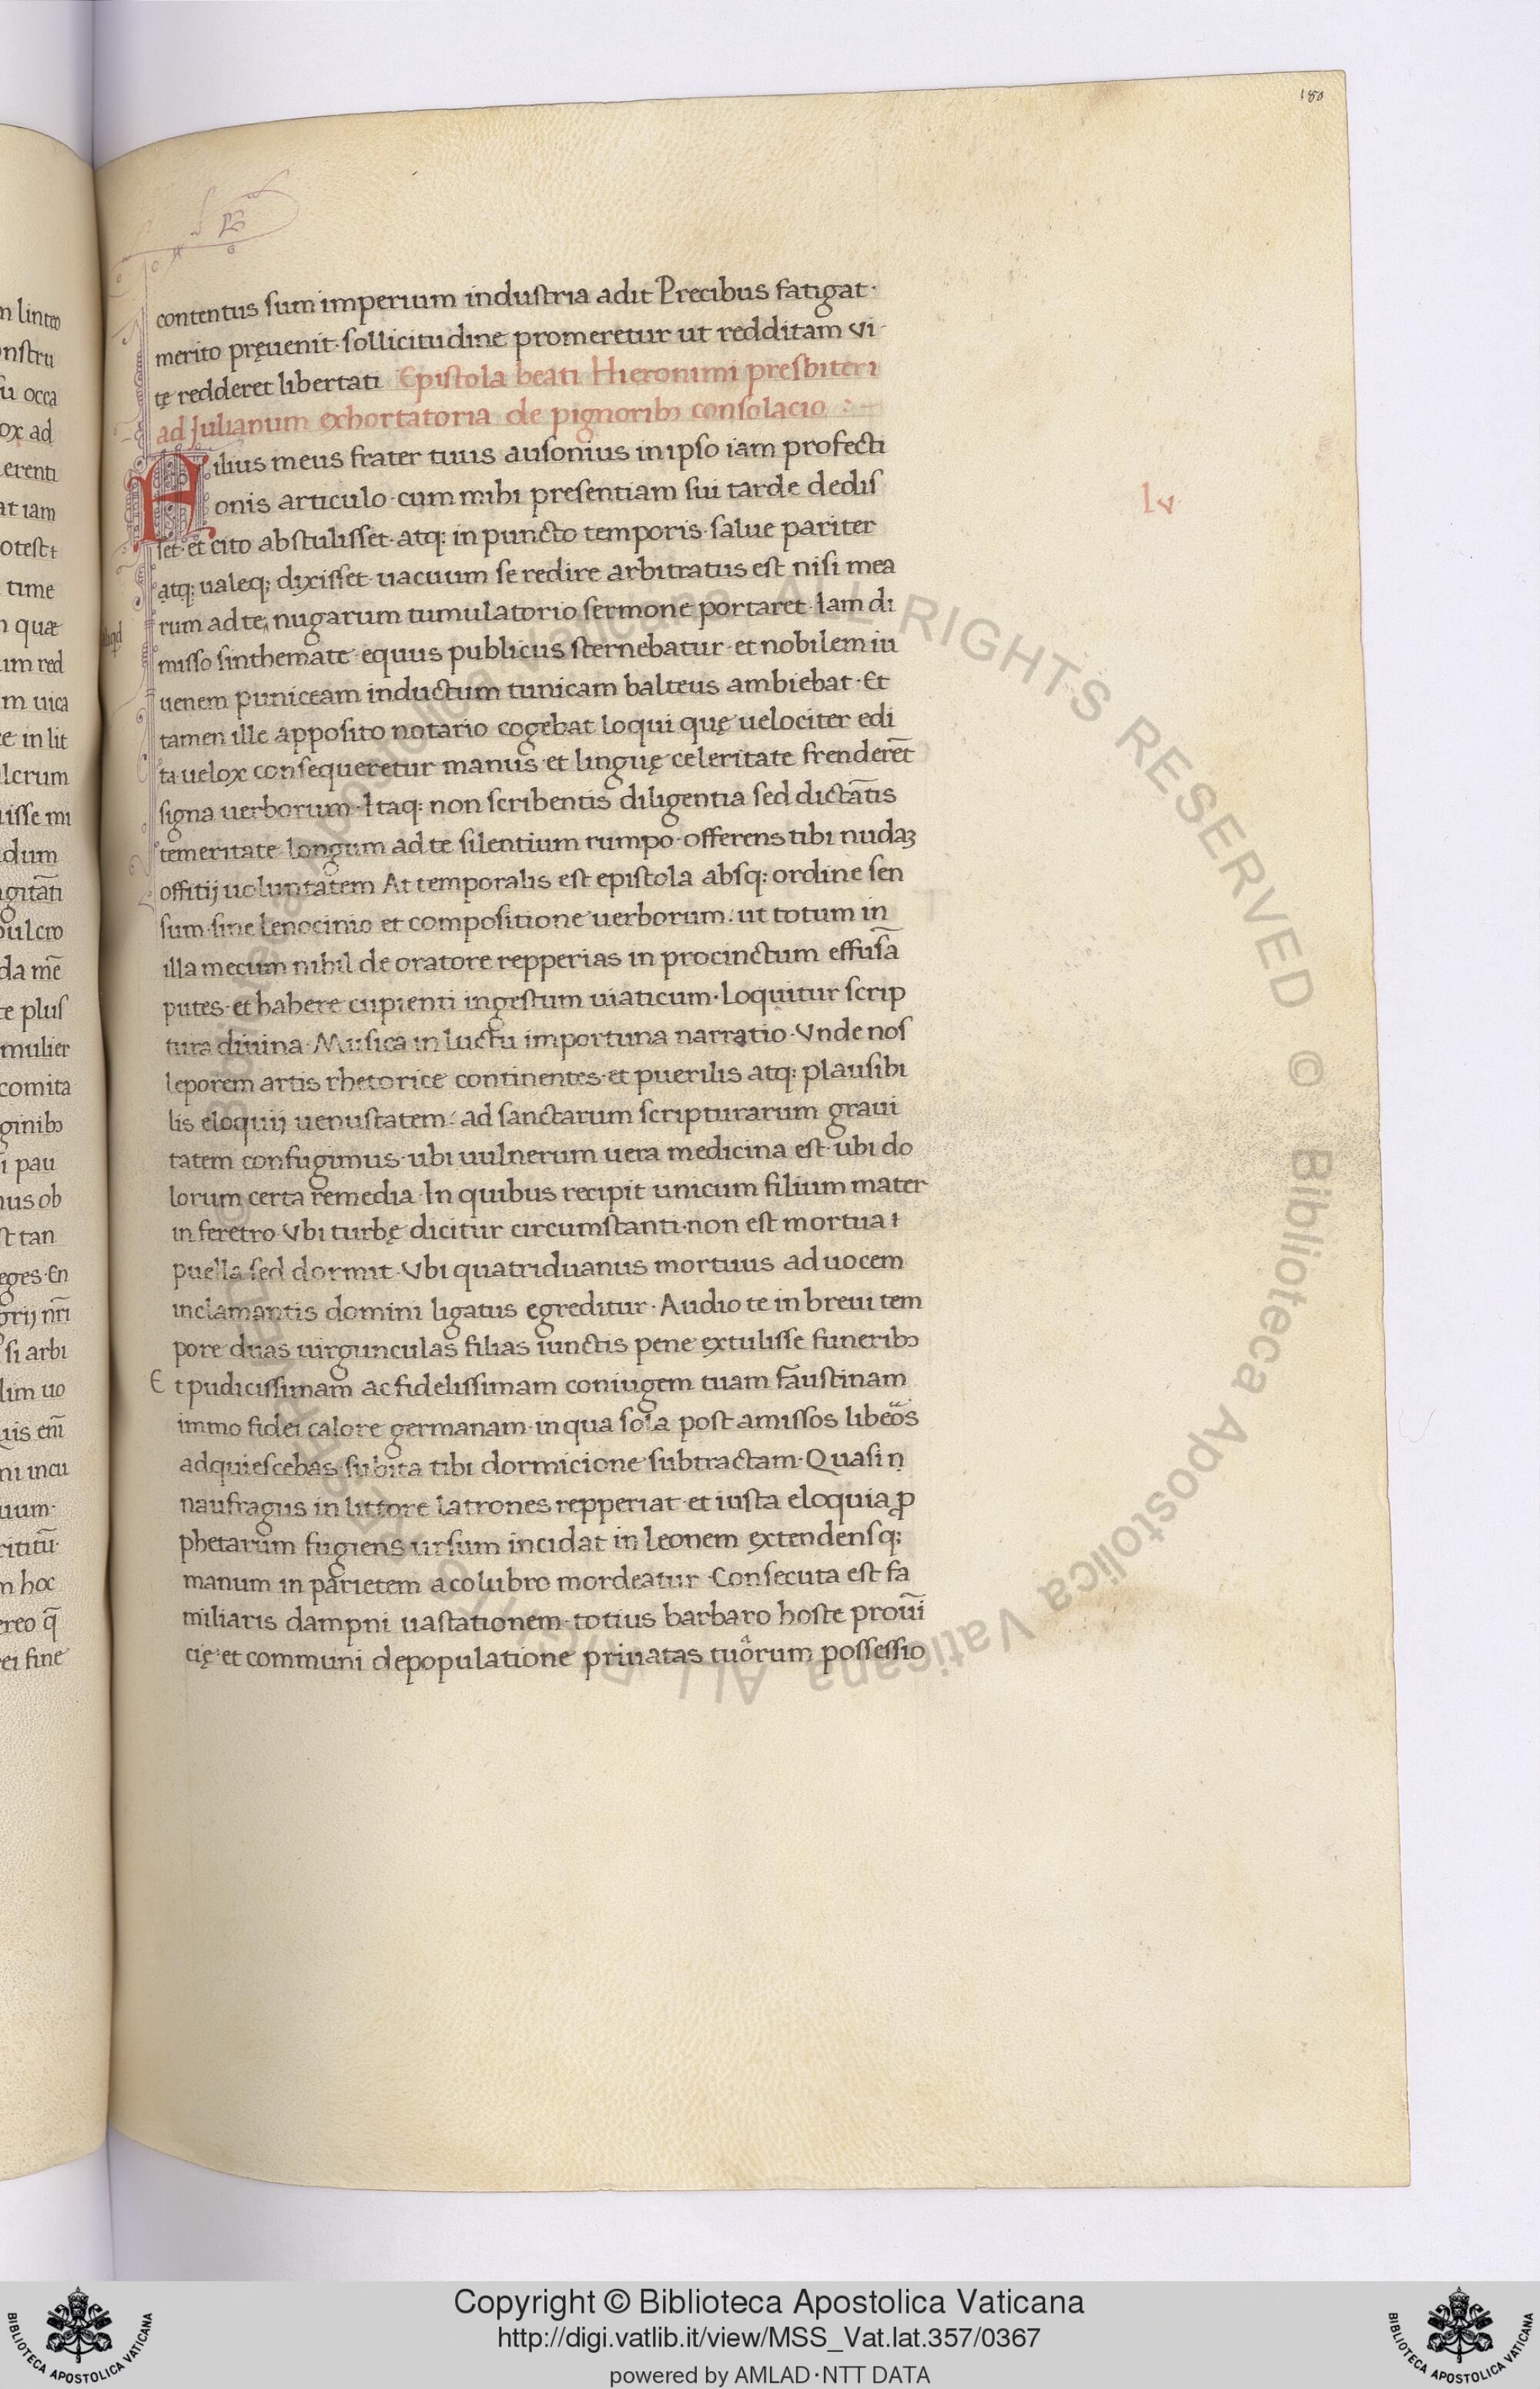 180
contentus sum imperium industria adit Precibus fatigat·
merito pręuenit· sollicitudine promeretur ut redditam vi-
tę redderet libertati Epistola beati Hieronimi presbiteri
ad Julianum exhortatoria de pignoribꝫ consolacio :—
Filius meus frater tuus ausonius in ipso iam profecti
lv·
onis articulo· cum mihi presentiam sui tarde dedis
set· et cito abstulisset· atq: in puncto temporis· salue pariter
atq; ualeq; dixisset· uacuum se redire arbitratus est nisi mea
rum ad te nugarum tumulatorio sermone portaret· Iam di
misso sinthemate equus publicus sternebatur· et nobilem iu
uenem puniceam inductum tunicam balteus ambiebat· Et
tamen ille apposito notario cogebat loqui quę uelociter edi
ta uelox consequeretur manus et linguę celeritate frenderēt
signa uerborum· Itaq: non scribentis diligentia sed dictātis
temeritate longum ad te silentium rumpo· offerens tibi nudaꝫ
offitij uoluntatem At temporalis est epistola absq: ordine sen
sum· sine lenocinio et compositione uerborum· ut totum in
illa mecum nihil de oratore repperias in procinctum effusā
putes· et habere cupienti ingestum uiaticum· Loquitur scrip
tura diuina· Musica in luctu importuna narratio· Vnde nos
leporem artis rhetorice continentes· et puerilis atq: plausibi
lis eloquij uenustatem· ad sanctarum scripturarum graui
tatem confugimus· ubi uulnerum uera medicina est· ubi do
lorum certa remedia· In quibus recipit unicum filium mater
in feretro· Vbi turbę dicitur circumstanti· non est mortua
puella sed dormit· Vbi quatriduanus mortuus ad uocem
inclamantis domini ligatus egreditur· Audio te in breui tem
pore duas uirgunculas filias iunctis pene extulisse funeribꝫ
Et pudicissimam ac fidelissimam coniugem tuam faustinam
immo fidei calore germanam· in qua sola post amissos libeōs
adquiescebas· subita tibi dormicione subtractam· Quasi n
naufragus in littore latrones repperiat· et iusta eloquia ꝓ
phetarum fugiens ursum incidat in leonem extendensq;
manum in parietem a colubro mordeatur· Consecuta est fa
miliaris dampni uastationem· totius barbaro hoste prouī
cię· et communi depopulatione priuatas tuorum possessio
Copyright © Biblioteca Apostolica Vaticana
http://digi.vatlib.it/view/MSS_Vat.lat.357/0367
powered by AMLAD·NTT DATA